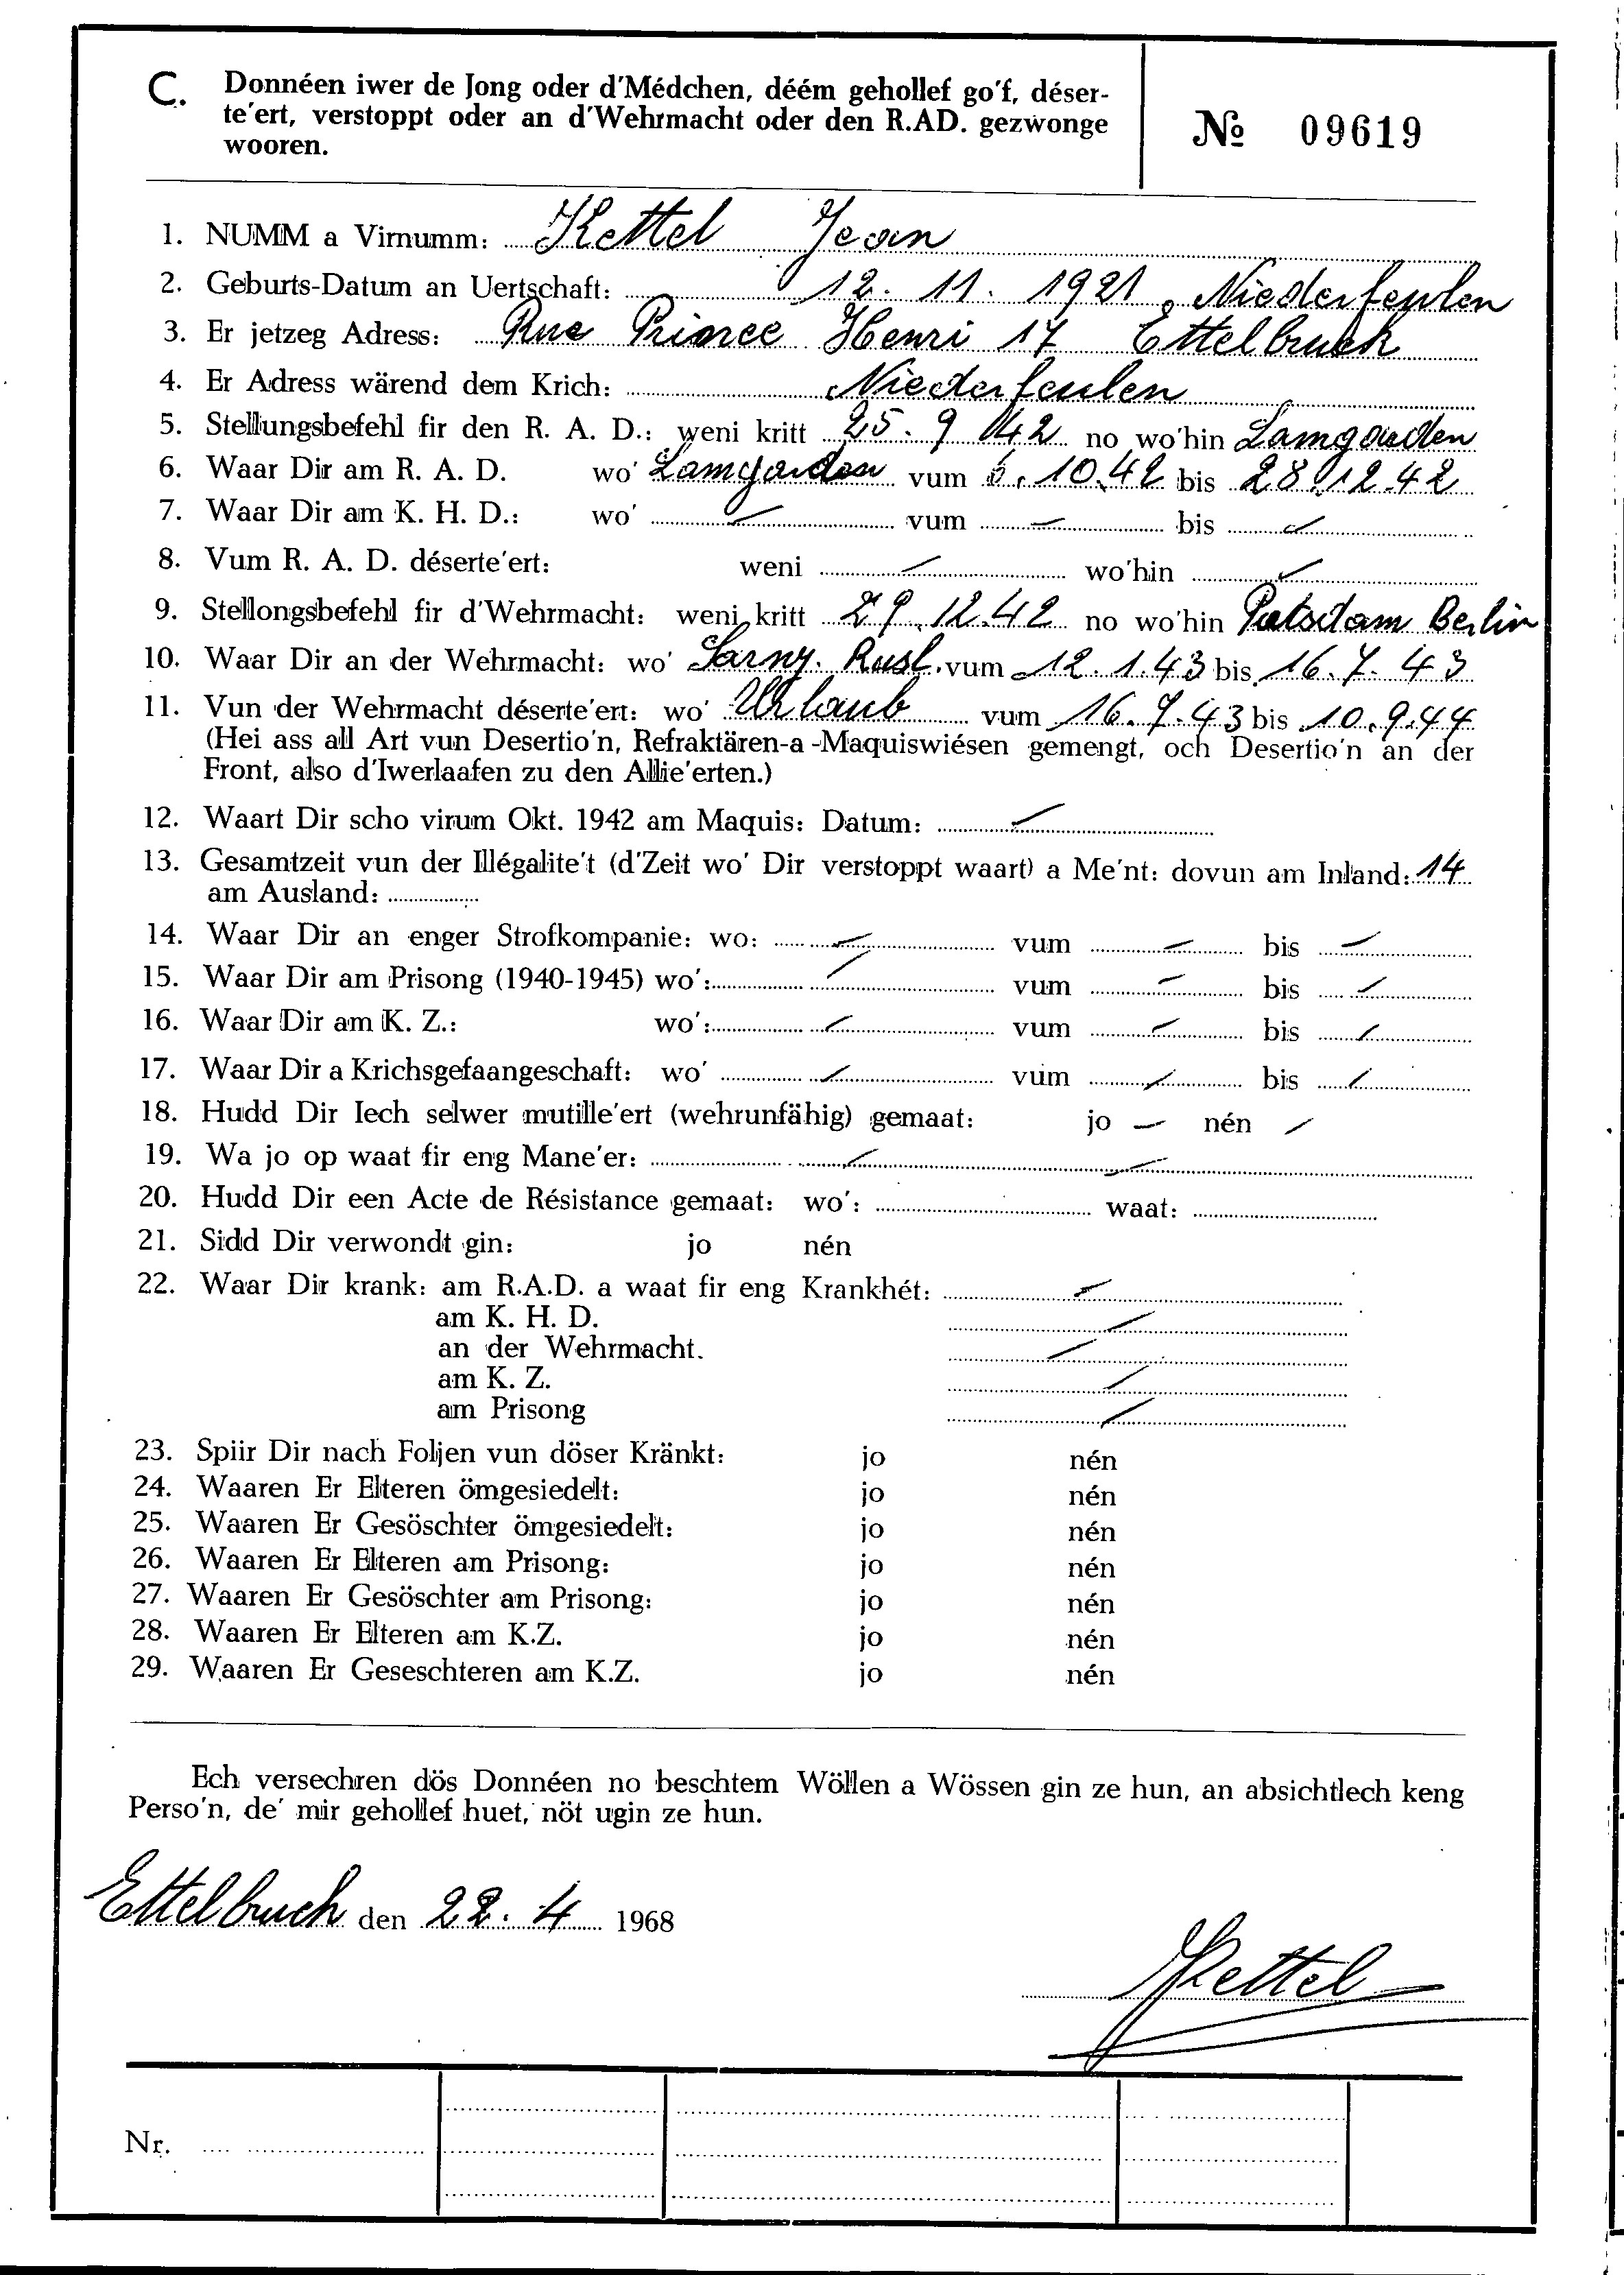 C. Donnéen iwer de Jong oder d'Médchen, déém gehollef go'f, déser-
te'ert, verstoppt oder an d'Wehrmacht oder den R.AD. gezwonge
wooren.
№ 09619
1. NUMM a Virnumm: Kettel Jean
2. Geburts-Datum an Uertschaft: 12. 11. 1921 Niederfeulen
3. Er jetzeg Adress: Rue Prince Henri 17 Ettelbruck
4. Er Adress wärend dem Krich: Niederfeulen
5. Stellungsbefehl fir den R. A. D.: weni kritt 25. 9 42 no wo'hin Lamgarden
6. Waar Dir am R. A. D. wo' Lamgarden vum 6. 10. 42 bis 28. 12. 42
7. Waar Dir am K. H. D.: wo' — vum — bis —
8. Vum R. A. D. déserte'ert: weni — wo'hin —
9. Stellongsbefehl fir d'Wehrmacht: weni kritt 29. 12. 42 no wo'hin Patsdam Berlin
10. Waar Dir an der Wehrmacht: wo' Sarny. Rusl. vum 12. 1. 43 bis 16. 7. 43
11. Vun der Wehrmacht déserte'ert: wo' Urlaub vum 16. 7. 43 bis 10. 9. 44
(Hei ass all Art vun Desertio'n, Refraktären-a-Maquiswiésen gemengt, och Desertio'n an der
Front, also d'Iwerlaafen zu den Allie'erten.)
12. Waart Dir scho virum Okt. 1942 am Maquis: Datum: —
13. Gesamtzeit vun der Illégalite't (d'Zeit wo' Dir verstoppt waart) a Me'nt: dovun am Inland: 14
am Ausland:
14. Waar Dir an enger Strofkompanie: wo: — vum — bis —
15. Waar Dir am Prisong (1940-1945) wo': — vum — bis —
16. Waar Dir am K. Z.: wo': — vum — bis —
17. Waar Dir a Krichsgefaangeschaft: wo' — vum — bis —
18. Hudd Dir Iech selwer mutille'ert (wehrunfähig) gemaat: jo — nén —
19. Wa jo op waat fir eng Mane'er: — —
20. Hudd Dir een Acte de Résistance gemaat: wo': waat:
21. Sidd Dir verwondt gin: jo nén
22. Waar Dir krank: am R.A.D. a waat fir eng Krankhét: —
am K. H. D. —
an der Wehrmacht. —
am K. Z. —
am Prisong —
23. Spiir Dir nach Foljen vun döser Kränkt: jo nén
24. Waaren Er Elteren ömgesiedelt: jo nén
25. Waaren Er Gesöschter ömgesiedelt: jo nén
26. Waaren Er Elteren am Prisong: jo nén
27. Waaren Er Gesöschter am Prisong: jo nén
28. Waaren Er Elteren am K.Z. jo nén
29. Waaren Er Geseschteren am K.Z. jo nén
Ech versechren dös Donnéen no beschtem Wöllen a Wössen gin ze hun, an absichtlech keng
Perso'n, de' mir gehollef huet, nöt ugin ze hun.
Ettelbruck den 22. 4 1968
Kettel
Nr.